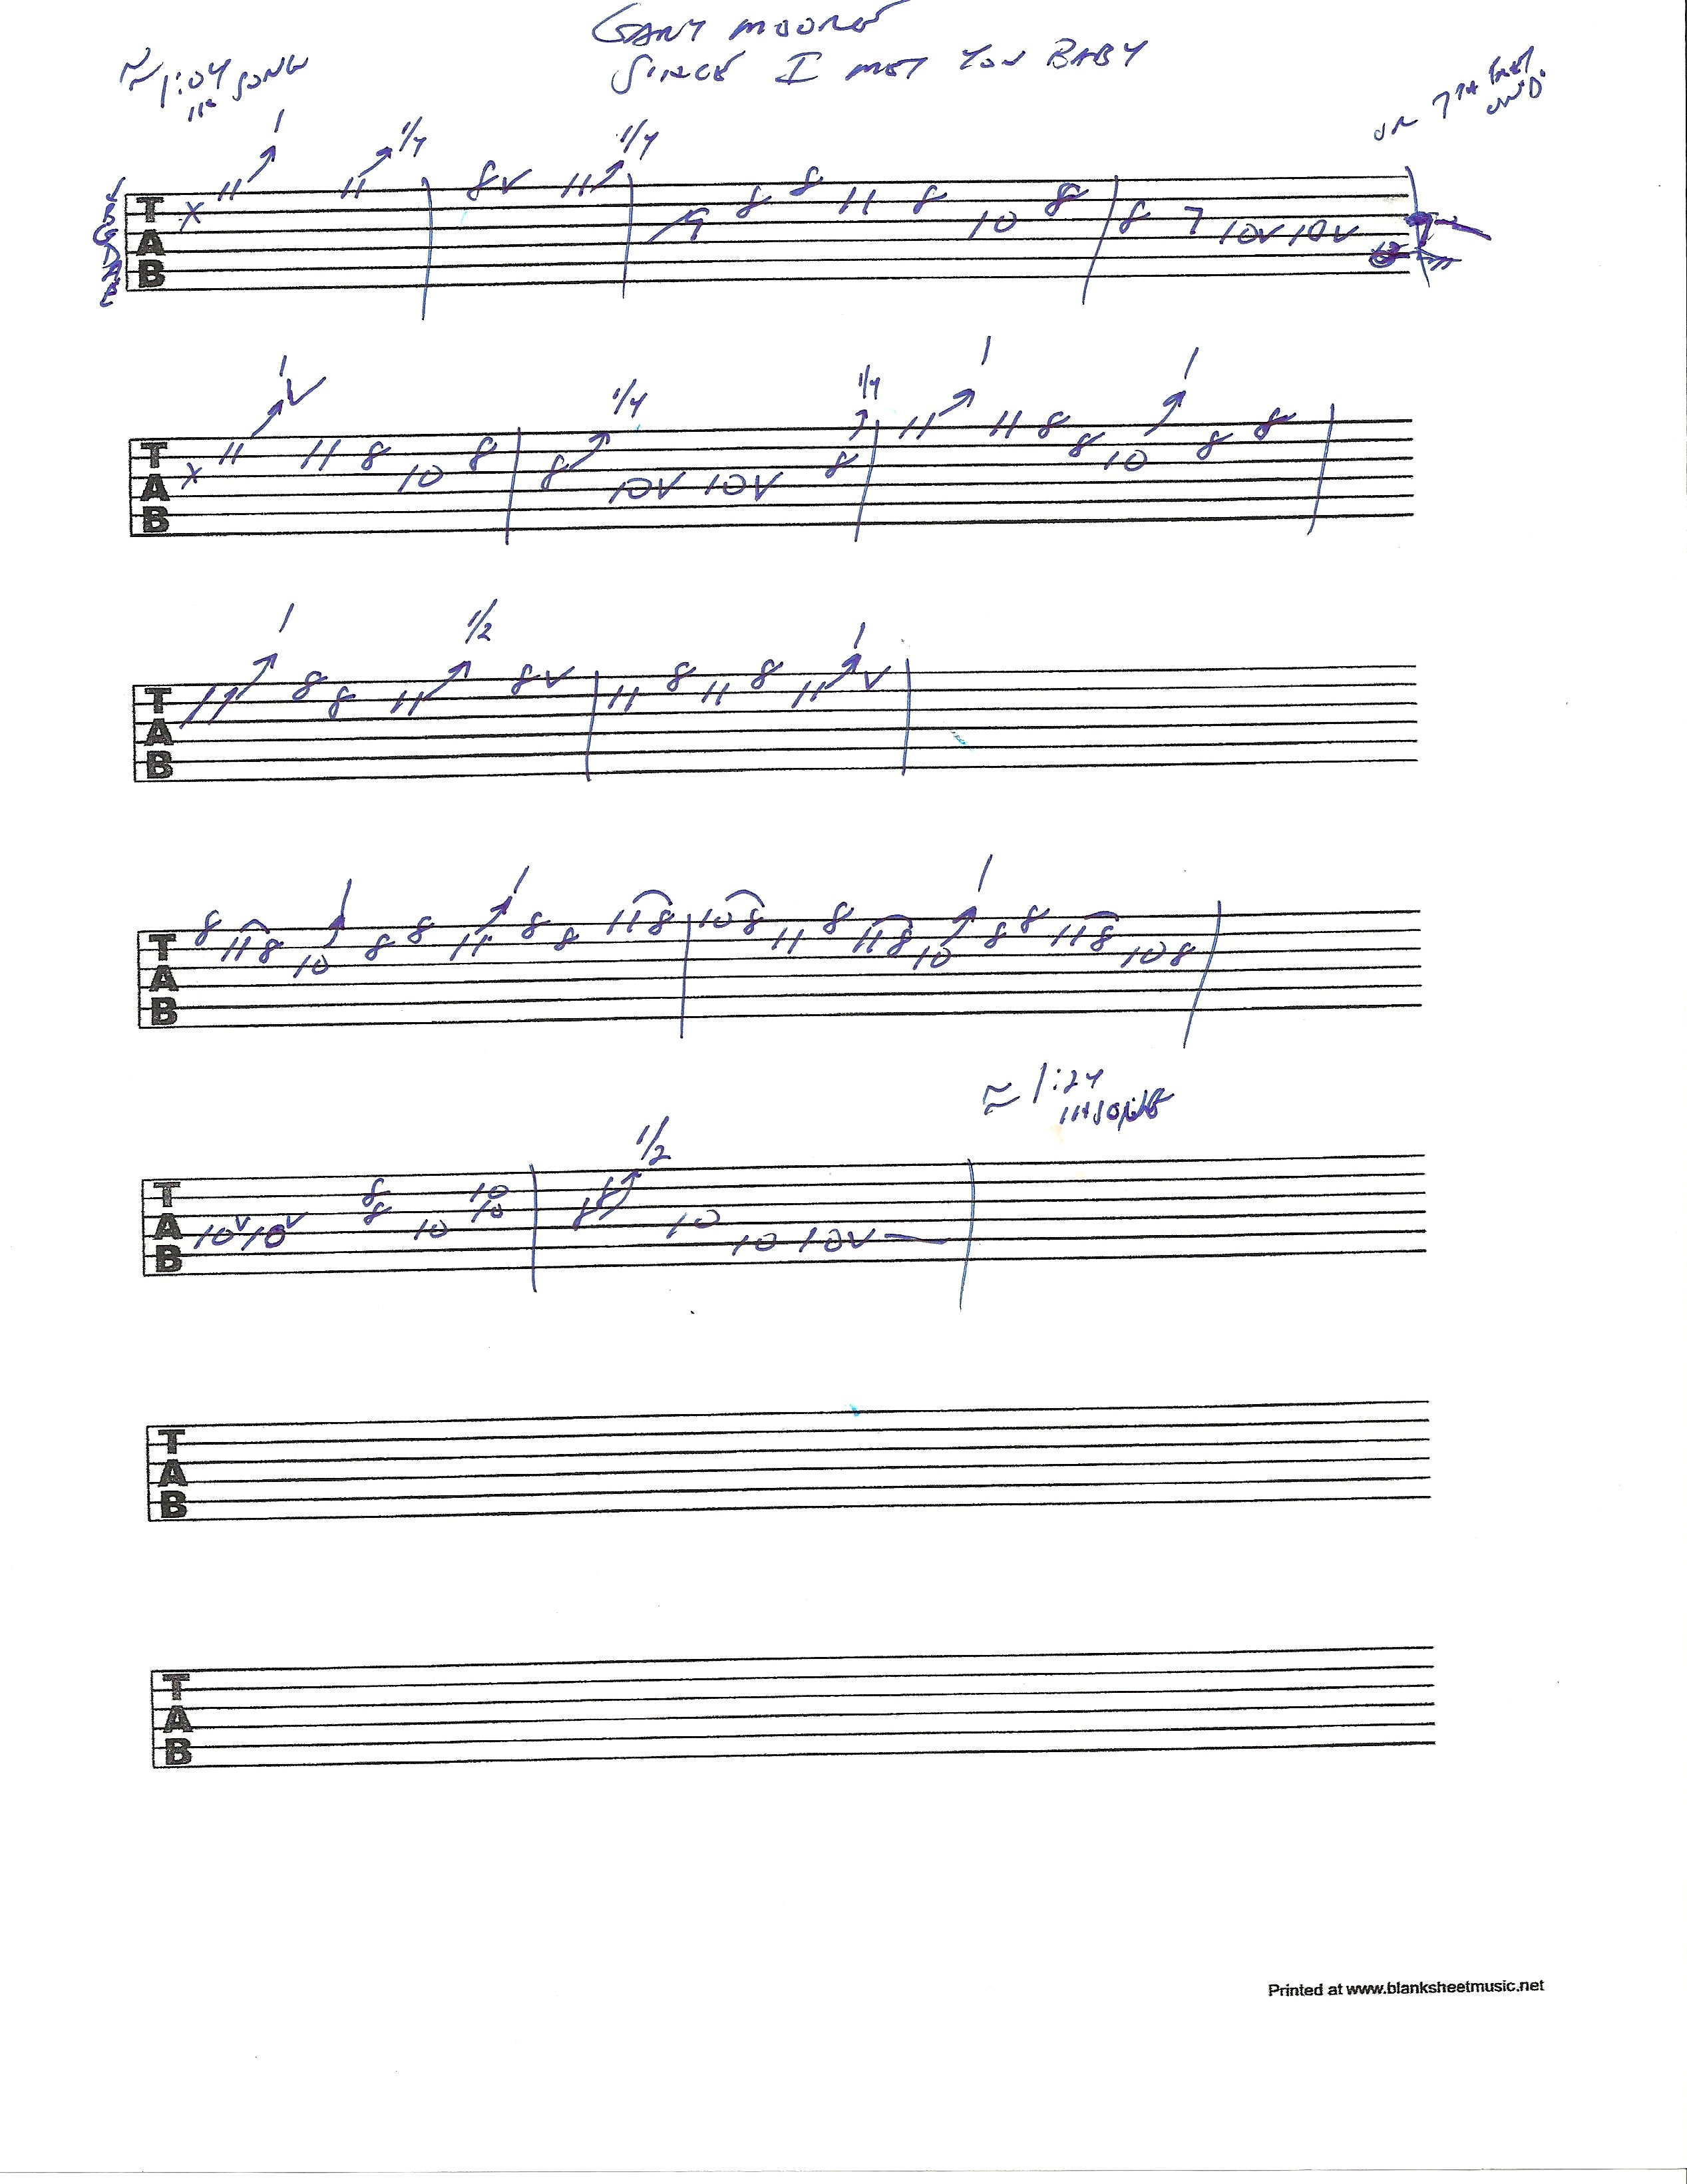 GARY MOORE
SINCE I MET YOU BABY
≈ 1:04
IN SONG
ON 7TH FRET
ON D.
1 1/4 1/4
E
B
G
D
A
E
T
A
B
x 11 11 8v 11 9 8 8 11 8 10 8 8 7 10v 10v
1 v 1/4 1/4 1 1
T
A
B
x 11 11 8 10 8 8 10v 10v 8 11 11 8 8 10 8 8
1 1/2 1
T
A
B
11 8 8 11 8v 11 8 11 8 11 v
1 1 1
T
A
B
8 11 8 10 8 8 11 8 8 11 8 10 8 11 8 11 8 10 8 8 11 8 10 8
≈ 1:24
IN SONG
1/2
T
A
B
10v 10v 8 8 10 10 10 8 8 10 10 10v
T
A
B
T
A
B
Printed at www.blanksheetmusic.net